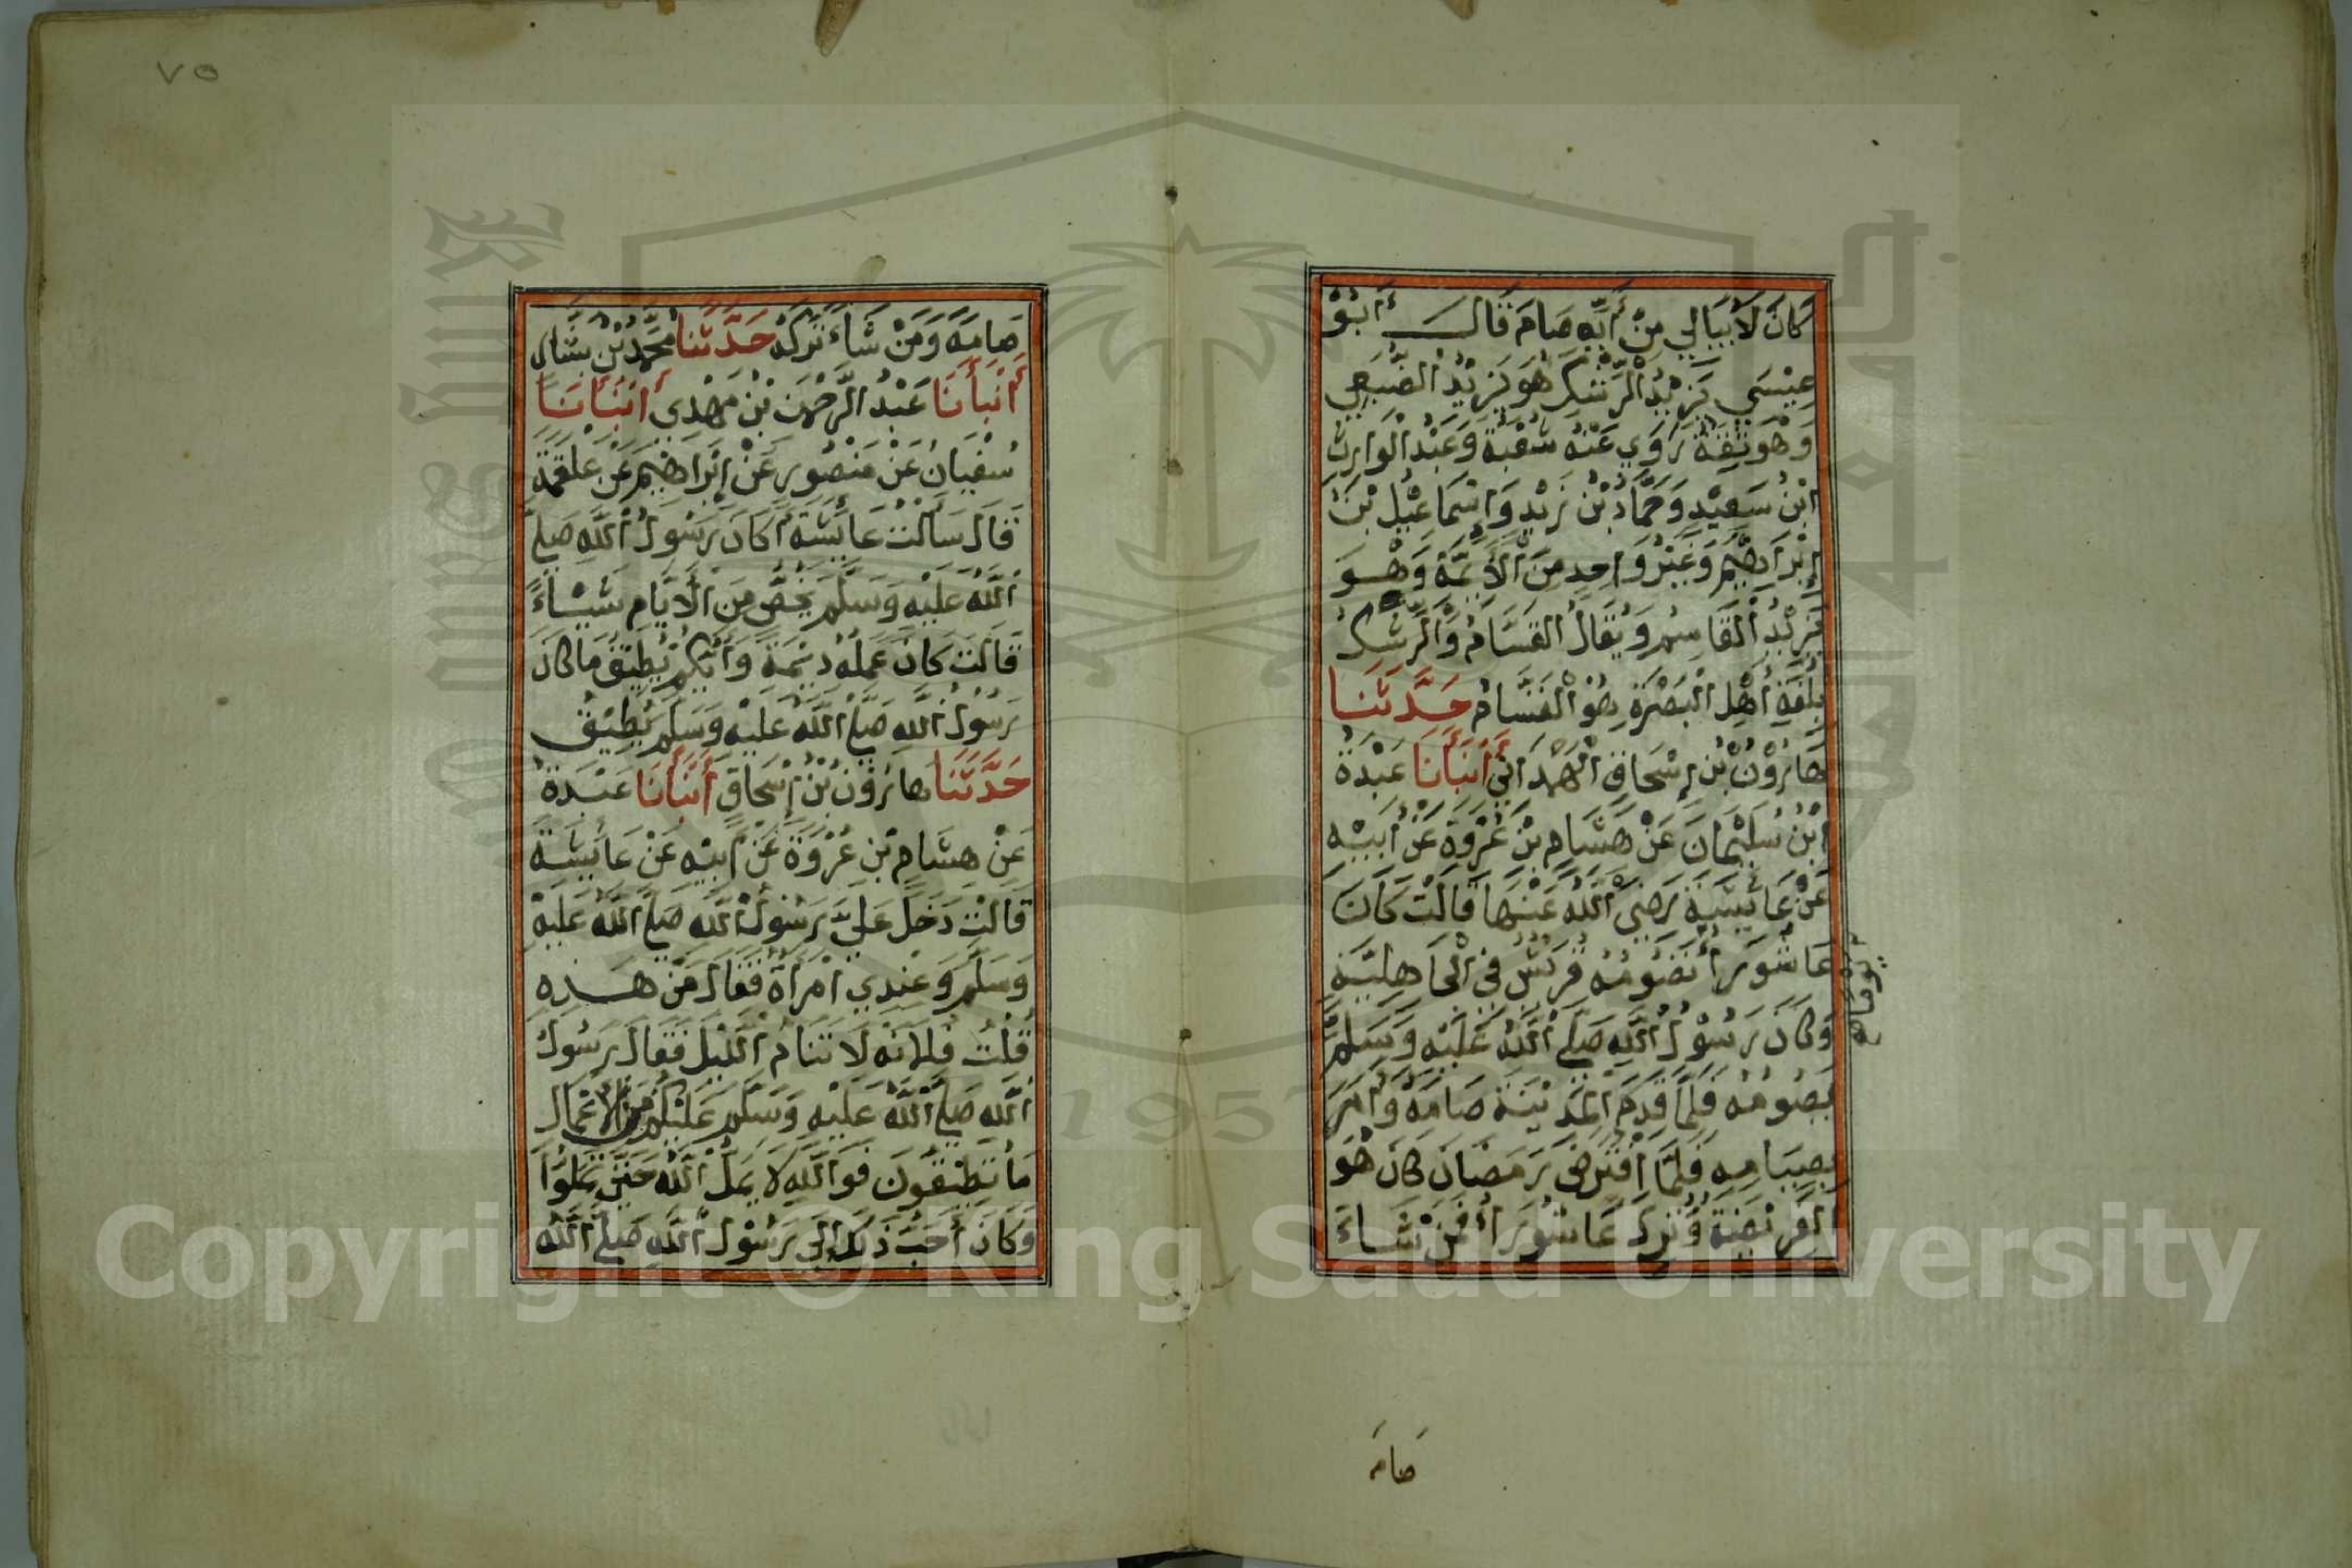 كَانَ لَا يُبَالِي مِنْ أَيِّهِ صَامَ قَالَ أَبُوْ
عِيْسَي يَزِيْدُ الرِّشْكِ هُوَ يَزِيْدُ الضُّبَعِي
وَهُوَ ثِقَةٌ رَوَي عَنْهُ شُعْبَةُ وَعَبْدُ الْوَارِثِ
ابْنُ سَعِيْدٍ وَحَمَّادُ بْنُ زَيْدٍ وَإِسْمَاعِيْلُ بْنُ
إِبْرَاهِيْمَ وَغَيْرُ وَاحِدٍ مِنَ الْأَيِمَّةِ وَهُوَ
يَزِيْدُ الْقَاسِمُ وَيُقَالُ الْقَسَّامُ وَالرِّشْكُ
بِلُغَةِ أَهْلِ الْبَصْرَةِ هُوَ الْقَسَّامُ حَدَّثَنَا
هَارُوْنُ بْنُ إِسْحَاقَ الْهَمْدَانِيُّ أَنْبَأَنَا عَبْدَةُ
ابْنُ سُلَيْمَانَ عَنْ هِشَامِ بْنِ عُرْوَةَ عَنْ أَبِيْهِ
عَنْ عَائِشَةَ رَضِيَ اللَّهُ عَنْهَا قَالَتْ كَانَ
عَاشُوْرَاءُ تَصُوْمُهُ قُرَيْشٌ فِي الْجَاهِلِيَّةِ
وَكَانَ رَسُوْلُ اللَّهِ صَلَّى اللَّهُ عَلَيْهِ وَسَلَّمَ
يَصُوْمُهُ فَلَمَّا قَدِمَ الْمَدِيْنَةَ صَامَهُ وَأَمَرَ
بِصِيَامِهِ فَلَمَّا افْتُرِضَ رَمَضَانُ كَانَ هُوَ
الْفَرِيْضَةُ وَتُرِكَ عَاشُوْرَاءُ فَمَنْ شَاءَ
صَامَهُ
٧٥
صَامَهُ وَمَنْ شَاءَ تَرَكَهُ حَدَّثَنَا مُحَمَّدُ بْنُ بَشَّارٍ
أَنْبَأَنَا عَبْدُ الرَّحْمٰنِ بْنُ مَهْدِي أَنْبَأَنَا
سُفْيَانُ عَنْ مَنْصُوْرٍ عَنْ إِبْرَاهِيْمَ عَنْ عَلْقَمَةَ
قَالَ سَأَلْتُ عَايِشَةَ أَكَانَ رَسُوْلُ اللَّهِ صَلَّى
اللَّهُ عَلَيْهِ وَسَلَّمَ يَخُصُّ مِنَ الْأَيَّامِ شَيْئًا
قَالَتْ كَانَ عَمَلُهُ دِيْمَةً وَأَيُّكُمْ يُطِيْقُ مَا كَانَ
رَسُوْلُ اللَّهِ صَلَّى اللَّهُ عَلَيْهِ وَسَلَّمَ يُطِيْقُ
حَدَّثَنَا هَارُوْنُ بْنُ إِسْحَاقَ أَنْبَأَنَا عَبْدَةُ
عَنْ هِشَامِ بْنِ عُرْوَةَ عَنْ أَبِيْهِ عَنْ عَائِشَةَ
قَالَتْ دَخَلَ عَلَيَّ رَسُوْلُ اللَّهِ صَلَّى اللَّهُ عَلَيْهِ
وَسَلَّمَ وَعِنْدِي امْرَأَةٌ فَقَالَ مَنْ هَذِهِ
قُلْتُ فُلَانَةُ لَا تَنَامُ اللَّيْلَ فَقَالَ رَسُوْلُ
اللَّهِ صَلَّى اللَّهُ عَلَيْهِ وَسَلَّمَ عَلَيْكُمْ مِنَ الْأَعْمَالِ
مَا تُطِيْقُوْنَ فَوَاللَّهِ لَا يَمَلُّ اللَّهُ حَتَّى تَمَلُّوْا
وَكَانَ أَحَبَّ ذَلِكَ إِلَى رَسُوْلِ اللَّهِ صَلَّى اللَّهُ
Copyright © King Saud University
1957